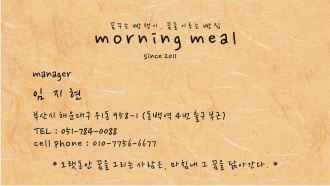 꿈꾸는 빵쟁이, 꿈을 이루는 빵집
morning meal
since 2011
manager
임 지 현
부산시 해운대구 우1동 958-1 (동백역 4번 출구 부근)
TEL : 051-784-0088
cell phone : 010-7756-6677
* 오랫동안 꿈을 그리는 사람은, 마침내 그 꿈을 닮아간다. *